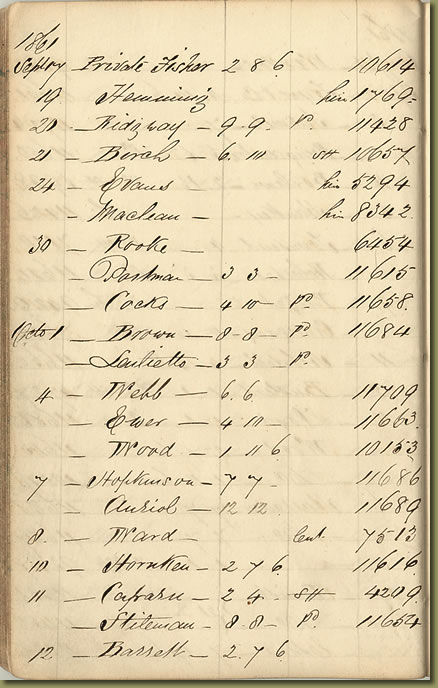 1861
Septr 17 Private Fisher 2 8 6 10614
19 Hemming hin 1769
20 - Ridgway - 9 - 9 - pd. 11428
21 - Birch - 6. 10 SH 10657
24 - Evans hin 5294
- Maclean - hin 8342
30 - Rooke 6454
- Postman - 3 3 - 11615
- Cocks - 4 10 - pd 11658.
Octo 1 - Brown - 8 - 8 - pd 11684
- 3 3 - pd.
4 - Webb - 6. 6 11709
- Ewer - 4 10 - 11663
- Wood - 1 11 6 10153
7 - Hopkinson - 7 7 - 11686
- Auriol - 12 12. 11689
8. - Ward - 7513
10 - Hornken - 2 7 6. 11616
11 - - 2 4. SH 4209
- Stileman - 8 - 8 - pd. 11654
12 - Barrett - 2. 7 6.